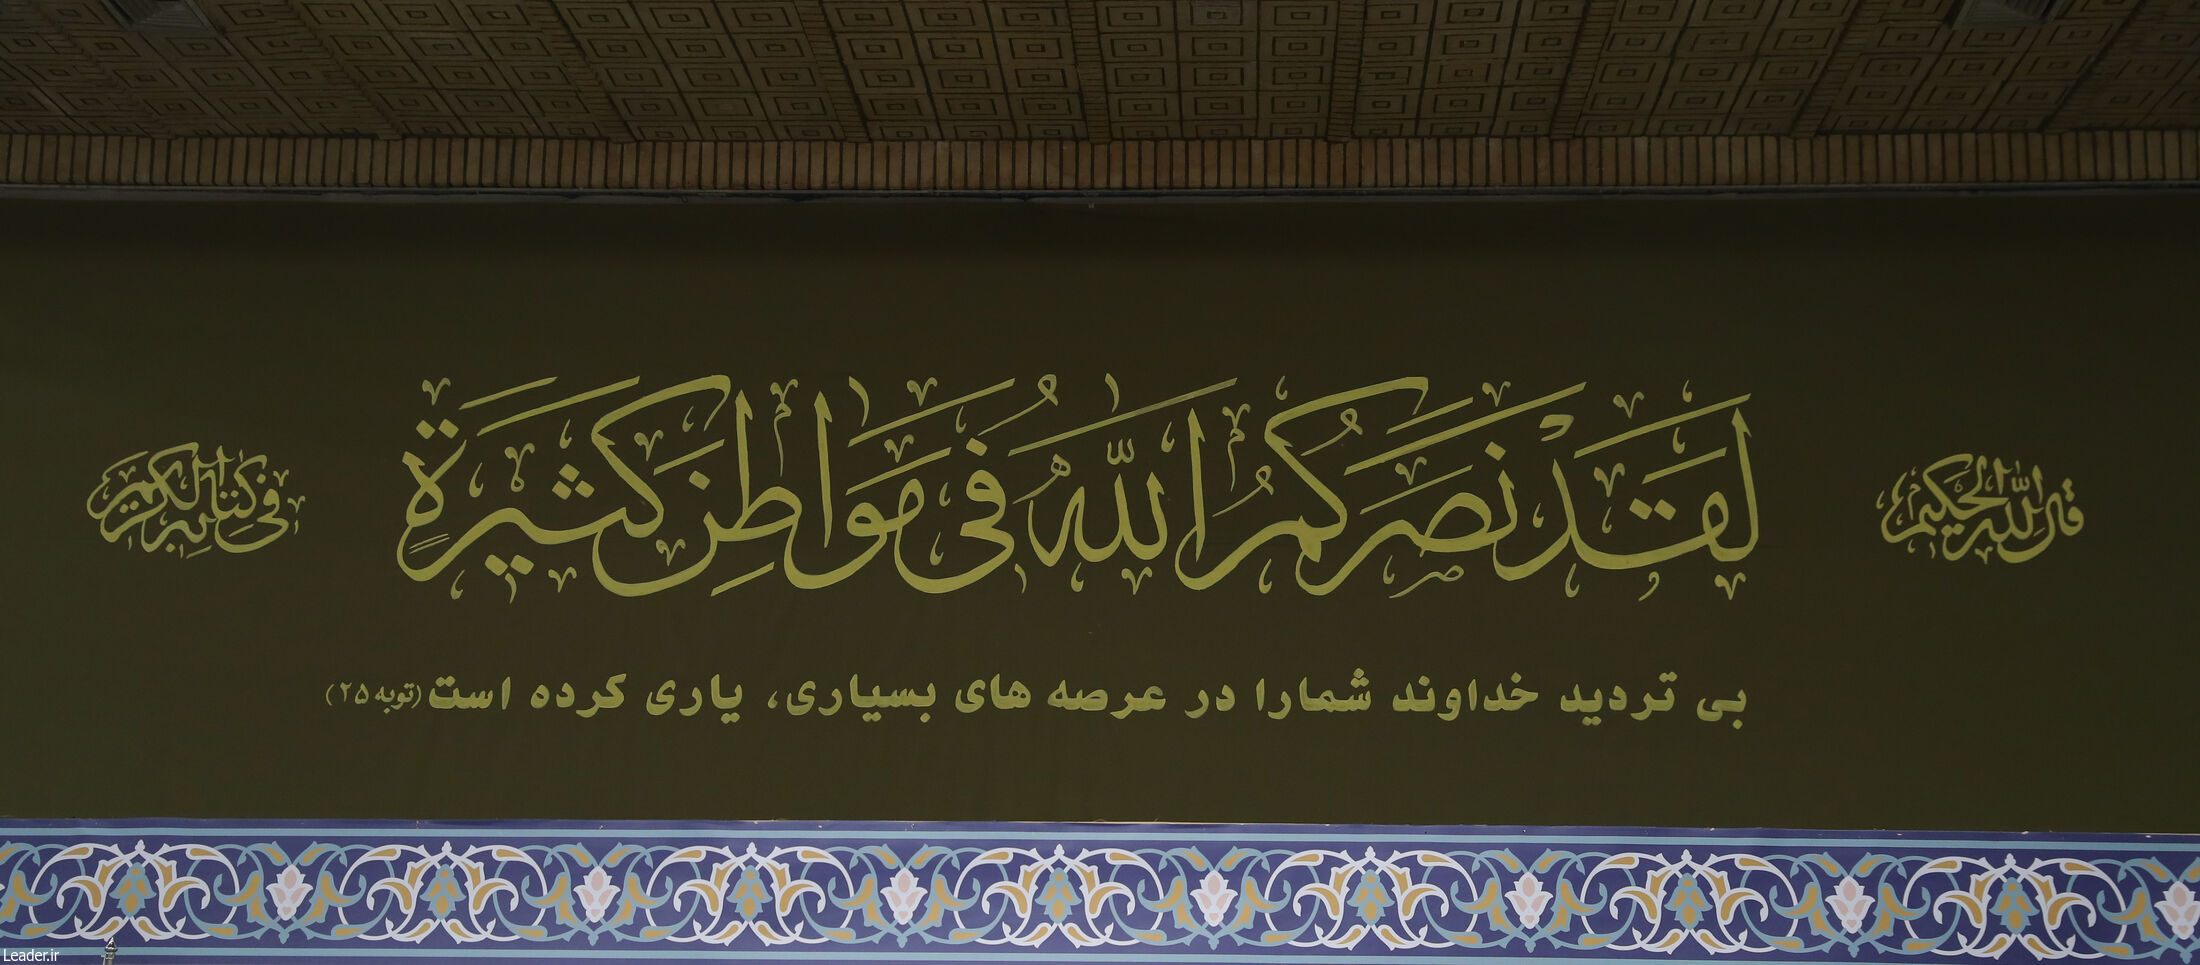 قال الله الحكيم
لَقَدْ نَصَرَكُمُ اللّٰهُ فِی مَوَاطِنَ كَثِیرَةٍ
فی كتابه الكريم
بی تردید خداوند شمارا در عرصه های بسیاری، یاری کرده است (توبه ۲۵)
Leader.ir